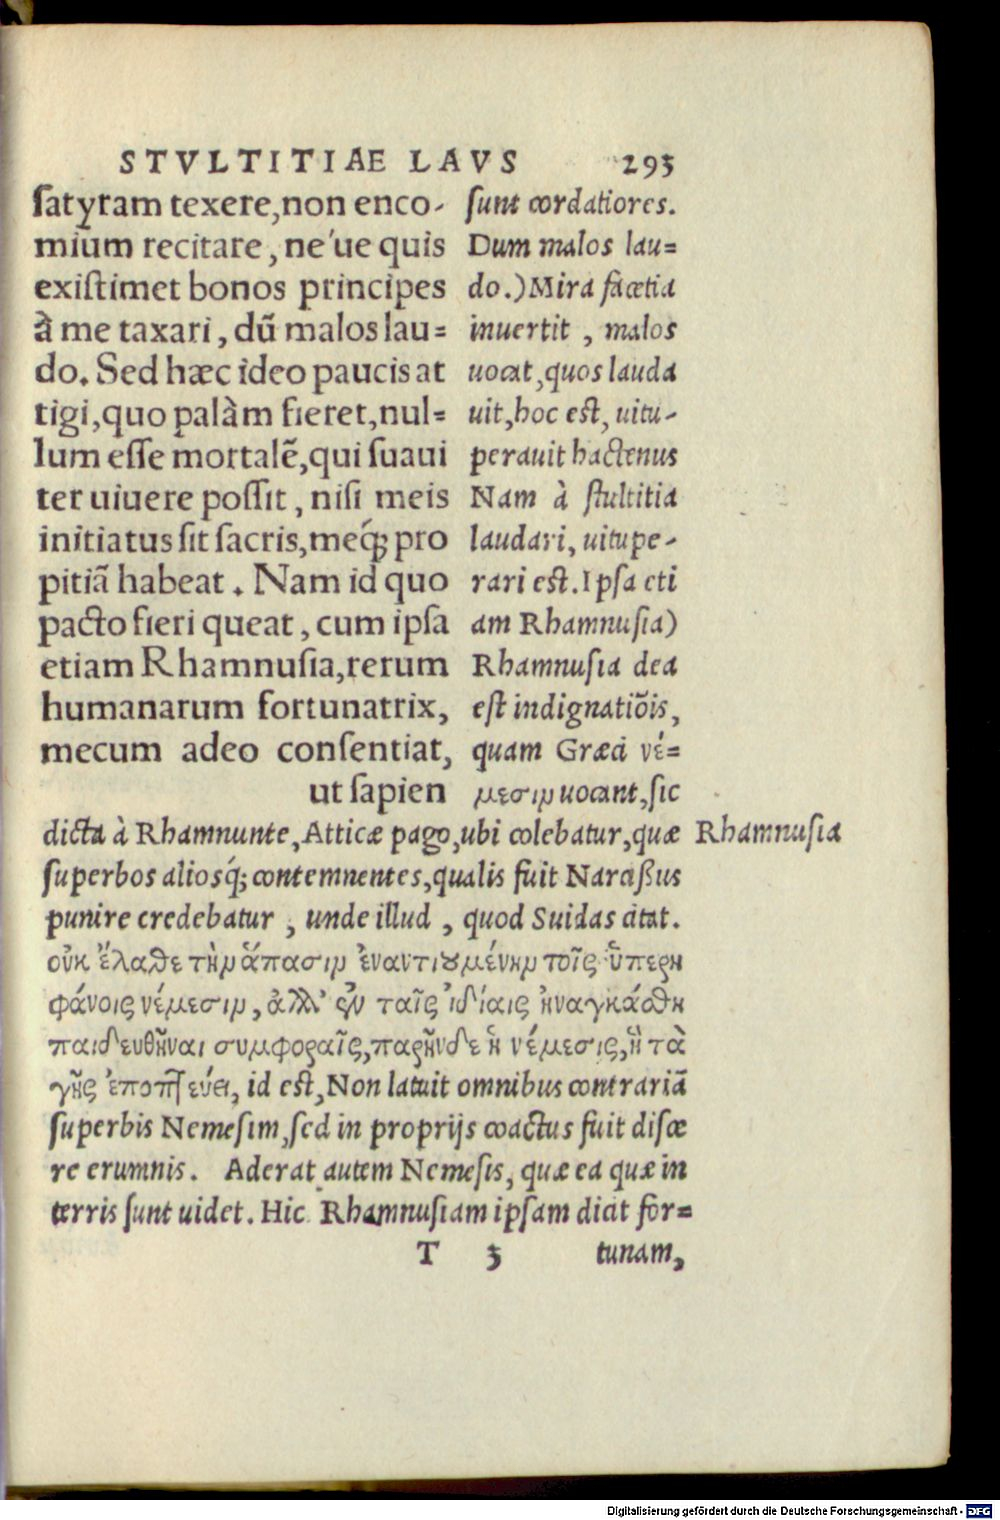 STVLTITIAE LAVS 293
satyram texere, non enco-
mium recitare, ne'ue quis
existimet bonos principes
à me taxari, dũ malos lau=
do. Sed hæc ideo paucis at
tigi, quo palàm fieret, nul=
lum esse mortalẽ, qui suaui
ter uiuere possit, nisi meis
initiatus sit sacris, meq́; pro
pitiã habeat. Nam id quo
pacto fieri queat, cum ipsa
etiam Rhamnusia, rerum
humanarum fortunatrix,
mecum adeo consentiat,
ut sapien
sunt cordatiores.
Dum malos lau=
do.) Mira facetia
inuertit, malos
uocat, quos lauda
uit, hoc est, uitu-
perauit hactenus
Nam à stultitia
laudari, uitupe-
rari est. Ipsa eti
am Rhamnusia)
Rhamnusia dea
est indignatiõis,
quam Græci νέ=
μεσιν uocant, sic
dicta à Rhamnunte, Atticæ pago, ubi colebatur, quæ
Rhamnusia
superbos aliosq́; contemnentes, qualis fuit Narcißus
punire credebatur, unde illud, quod Suidas citat.
οὐκ ἔλαθε τὴν ἅπασιν ἐναντιουμένην τοῖς ὑπερη
φάνοις νέμεσιν, ἀλλ' ἐν ταῖς ἰδίαις ἠναγκάσθη
παιδευθῆναι συμφοραῖς, παρῆν δε ἡ νέμεσις, ἣ τὰ
γῆς ἐποπτεύει, id est, Non latuit omnibus contrariã
superbis Nemesim, sed in proprijs coactus fuit disce
re erumnis. Aderat autem Nemesis, quæ ea quæ in
terris sunt uidet. Hic Rhamnusiam ipsam dicit for=
T 3 tunam,
Digitalisierung gefördert durch die Deutsche Forschungsgemeinschaft - DFG